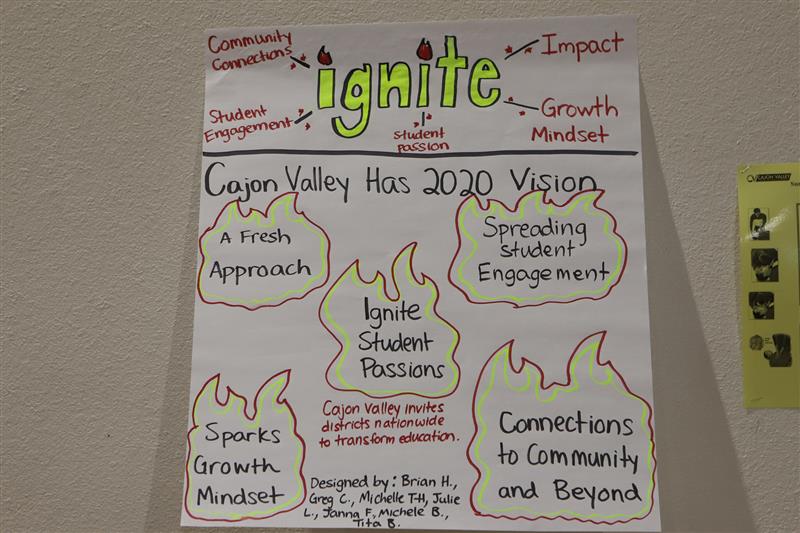 Community
Connections
ignite
Impact
Student
Engagement
Student
Passion
Growth
Mindset
Cajon Valley Has 2020 Vision
A Fresh
Approach
Spreading
Student
Engagement
Ignite
Student
Passions
Sparks
Growth
Mindset
Cajon Valley invites
districts nationwide
to transform education.
Connections
to Community
and Beyond
Designed by: Brian H.,
Greg C., Michelle T-H, Julie
L., Janna F, Michele B.,
Tita B.
CAJON VALLEY